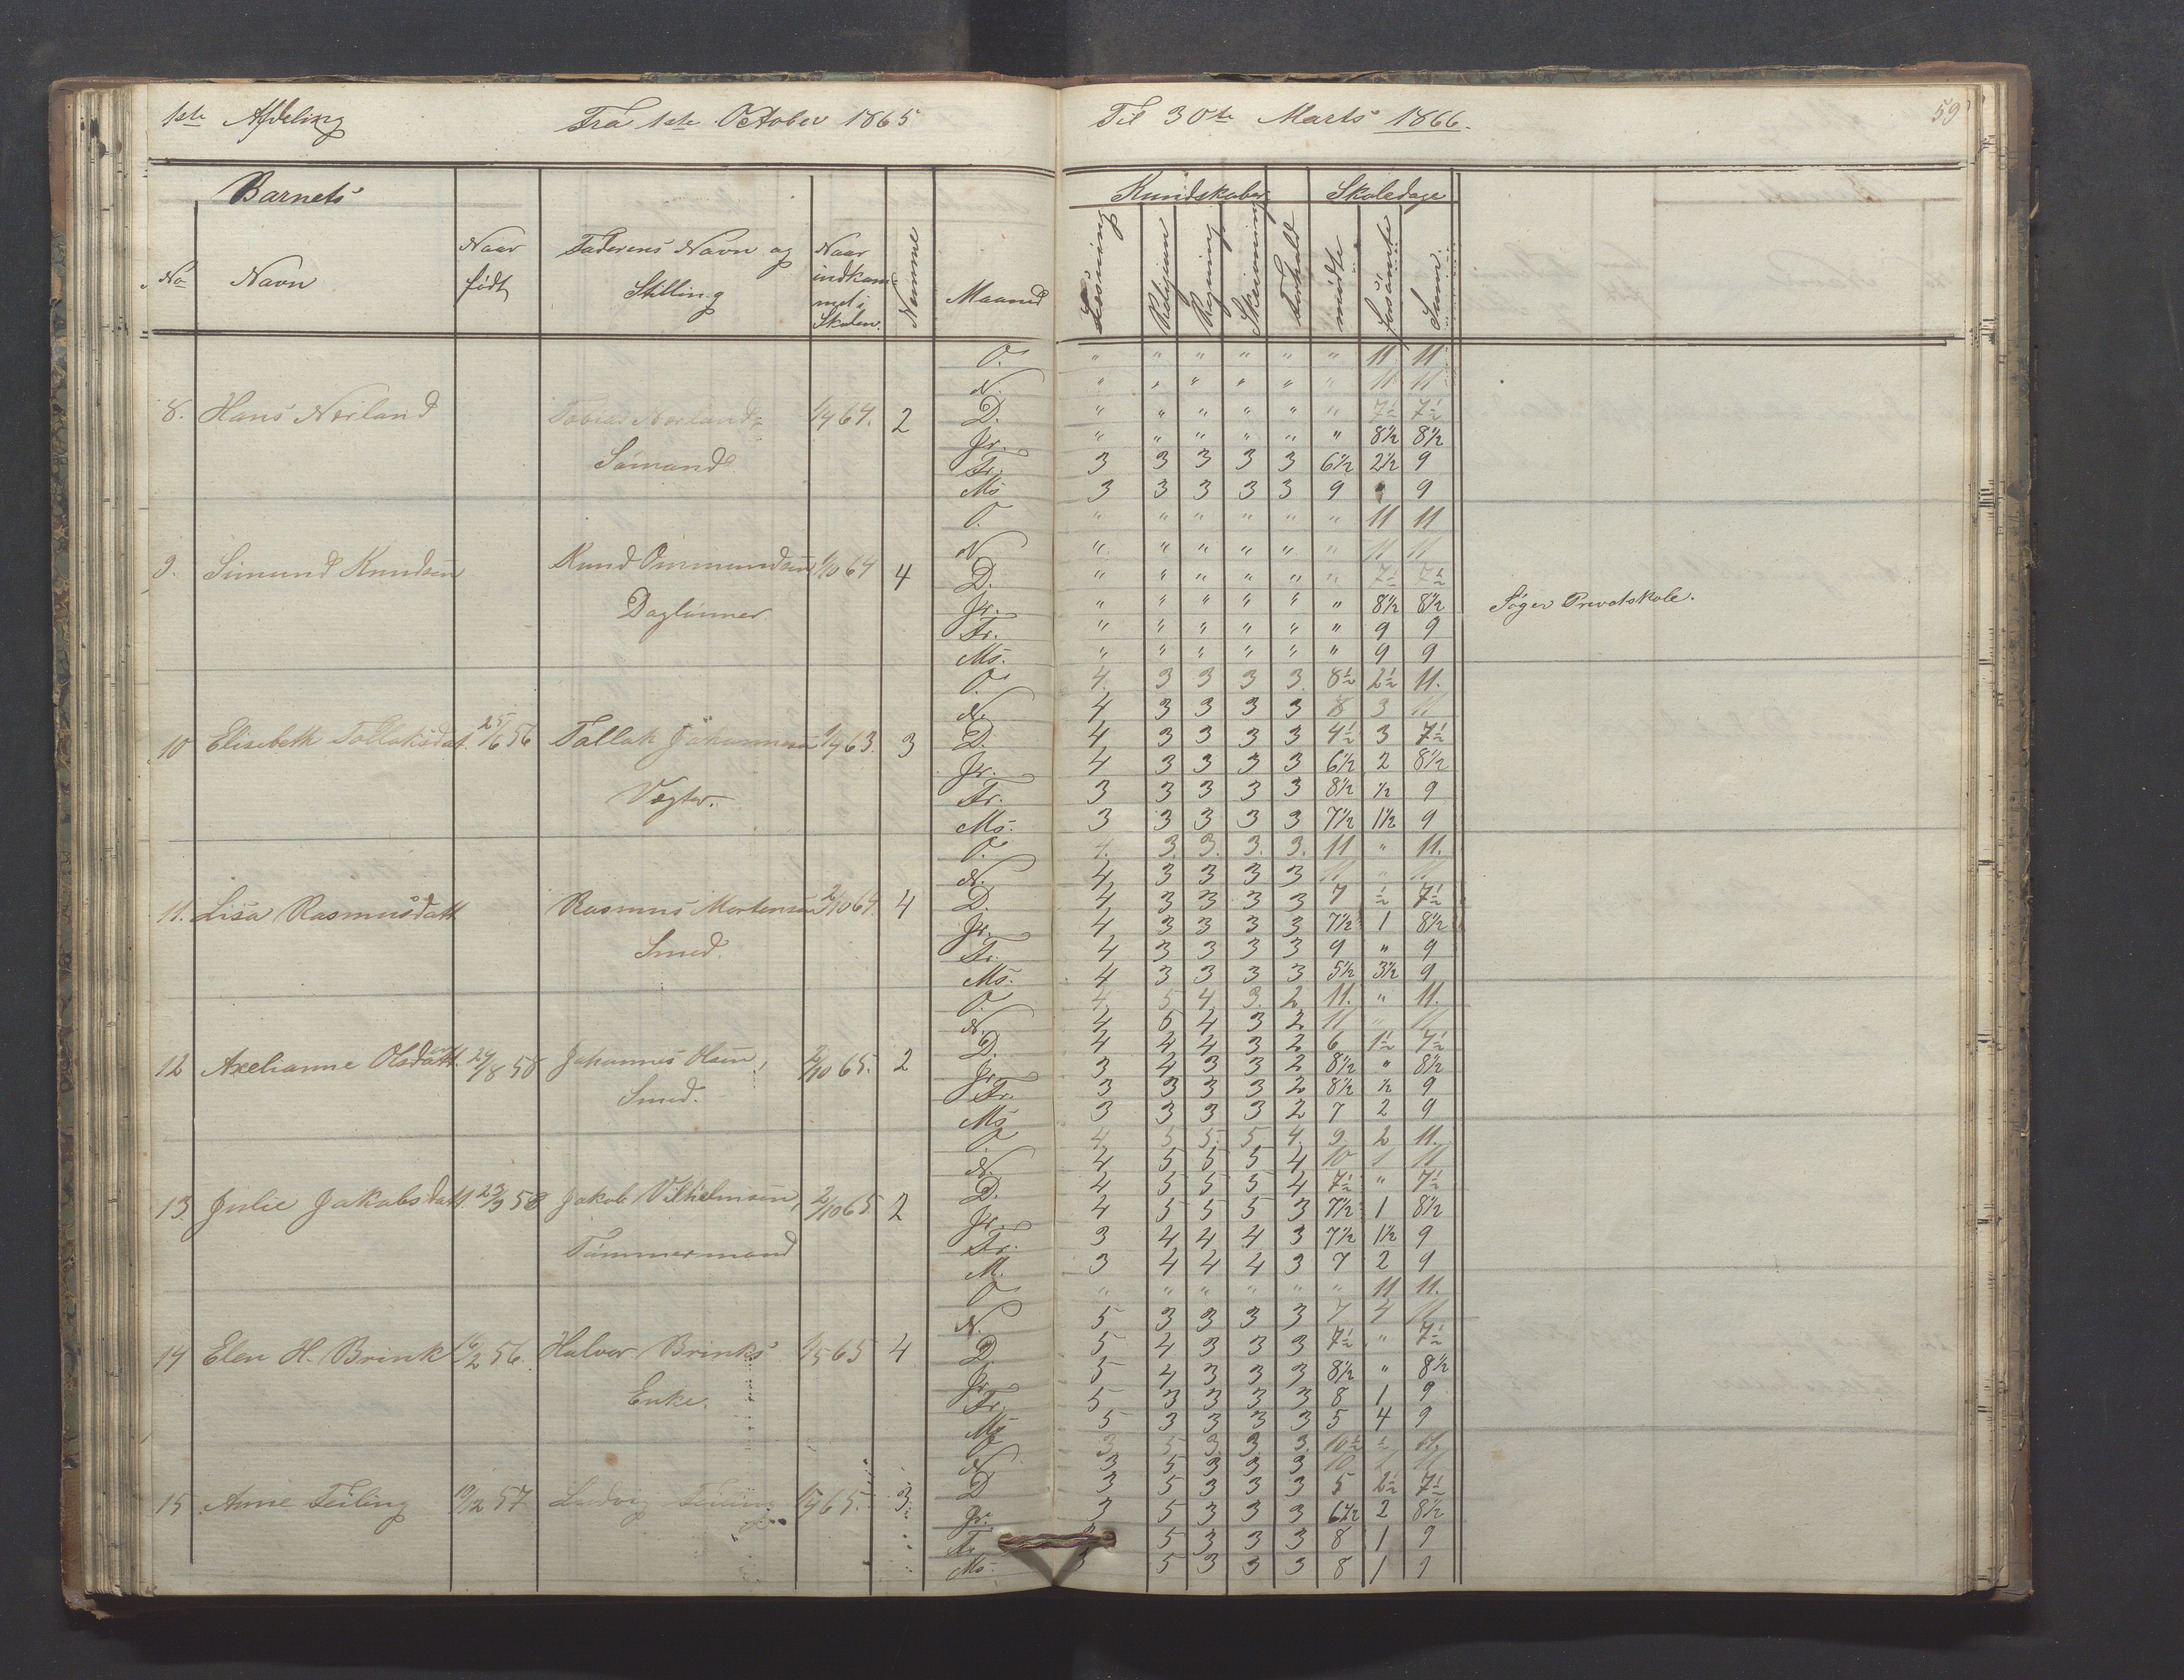 1ste Afdeling Fra 1ste October 1865 Til 30te Marts 1866. 59
Barnets Kundskaber Skoledage
No Navn Naar født Faderens Navn og Stilling Naar indkommet i Skolen. Nummer Maaned Læsning Religion Regning Skrivning Forhold mødte forsömte Sum
O. " " " " " " 11 11
N. " " " " " " 11 11
8. Hans Norland Tobias Norland 64. 2 D. " " " " " " 7½ 7½
Jr. " " " " " " 8½ 8½
Sömand Fr. 3 3 3 3 3 6½ 2½ 9
Ms 3 3 3 3 3 9 " 9
O. " " " " " " 11 11
N. " " " " " " 11 11
9. Simund Knudsen Knud Ommundsen 1/10 64 4 D. " " " " " " 7½ 7½
Daglönner Jr. " " " " " " 8½ 8½ Söger Privatskole.
Fr. " " " " " " 9 9
Ms. " " " " " " 9 9
O. 4. 3 3 3 3. 8½ 2½ 11.
N. 4 3 3 3 3 8 3 11
10 Elisebeth Tollaksdat. 25/6 56 Tallak Johannesen 63. 3 D. 4 3 3 3 3 4½ 3 7½
Jr. 4 3 3 3 3 6½ 2 8½
Vægter. Fr. 3 3 3 3 3 8½ ½ 9
Ms. 3 3 3 3 3 7½ 1½ 9
O. 4. 3. 3. 3. 3. 11 " 11.
N. 4 3 3 3 3 11 " 11
11. Lisa Rasmusdatt Rasmus Mortensen 2/10 64. 4 D. 4 3 3 3 3 7 ½ 7½
Jr. 4 3 3 3 3 7½ 1 8½
Smed. Fr. 4 3 3 3 3 9 " 9
Ms. 4 3 3 3 3 5½ 3½ 9
O. 4. 5 4 3. 2 11. " 11.
N. 4 5 4 3 2 11 " 11
12 Axelianne Olsdatt. 24/8 58 Johannes Olsen, 2/10 65. 2 D. 4 4 4 3 2 6 1½ 7½
Jr. 3 4 3 3 2 8½ " 8½
Smed. Fr. 3 3 3 3 2 8½ ½ 9
Ms 3 3 3 3 2 7 2 9
O 4. 5 5. 5 4. 9. 2 11.
N. 4 5 5 5 4 10 1 11
13. Julie Jakobsdatt. 23/9 58 Jakob Vilhelmsen, 2/10 65 2 D. 4 5 5 5 4 7½ " 7½
Jr. 4 5 5 5 3 7½ 1 8½
Tömmermand Fr. 3 4 4 4 3 7½ 1½ 9
M. 3 4 4 4 3 7 2 9
O " " " " " " 11 11.
N. 5 3 3 3 3 7 4 11
14 Elen H. Brink 56. Halvor Brinks 1/5 65 4 D. 5 4 3 3 3 7½ " 7½
Jr 5 4 3 3 3 8½ " 8½
Enke. Fr. 5 3 3 3 3 8 1 9
Ms 5 3 3 3 3 5 4 9
O 3. 5 3. 3. 3. 10½ ½ 11.
N 3 5 3 3 3 10 1 11
15 Anne Teiling 57 Ludvig Teiling 65. 3 D 3 5 3 3 3 5 2½ 7½
Jr. 3 5 3 3 3 6½ 2 8½
Fr 5 3 3 3 8 1 9
Ms 3 5 3 3 3 8 1 9